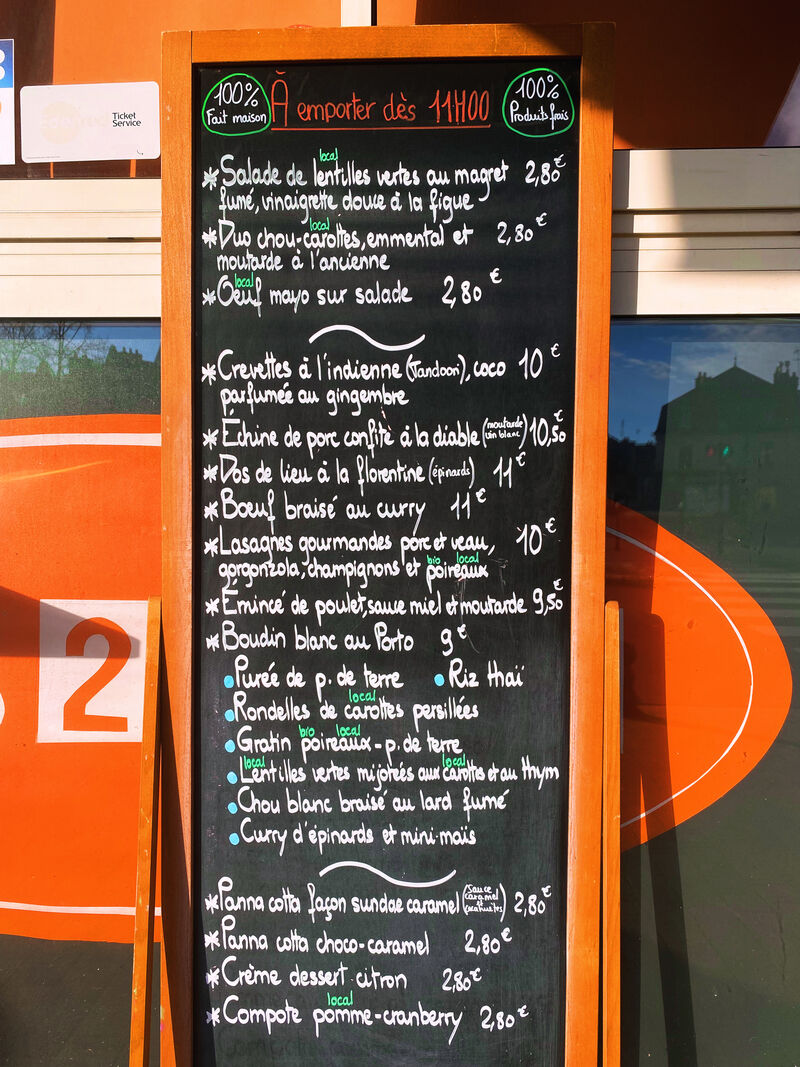 100%
Fait maison
À emporter dès 11H00
100%
Produits frais
Ticket
Service
local
*Salade de lentilles vertes au magret 2,80€
fumé, vinaigrette douce à la figue
local
*Duo chou-carottes, emmental et 2,80€
moutarde à l'ancienne
local
*Oeuf mayo sur salade 2,80€
*Crevettes à l'indienne (Tandoori), coco 10€
parfumée au gingembre
*Échine de porc confite à la diable (moutarde vin blanc) 10,50€
*Dos de lieu à la florentine (épinards) 11€
*Boeuf braisé au curry 11€
*Lasagnes gourmandes porc et veau, 10€
bio local
gorgonzola, champignons et poireaux
*Émincé de poulet, sauce miel et moutarde 9,50€
*Boudin blanc au Porto 9€
•Purée de p. de terre •Riz thaï
local
•Rondelles de carottes persillées
bio local
•Gratin poireaux-p. de terre
local local
•Lentilles vertes mijotées aux carottes et au thym
•Chou blanc braisé au lard fumé
•Curry d'épinards et mini-maïs
*Panna cotta façon sundae caramel (Sauce caramel et cacahuètes) 2,80€
*Panna cotta choco-caramel 2,80€
*Crème dessert citron 2,80€
local
*Compote pomme-cranberry 2,80€
2